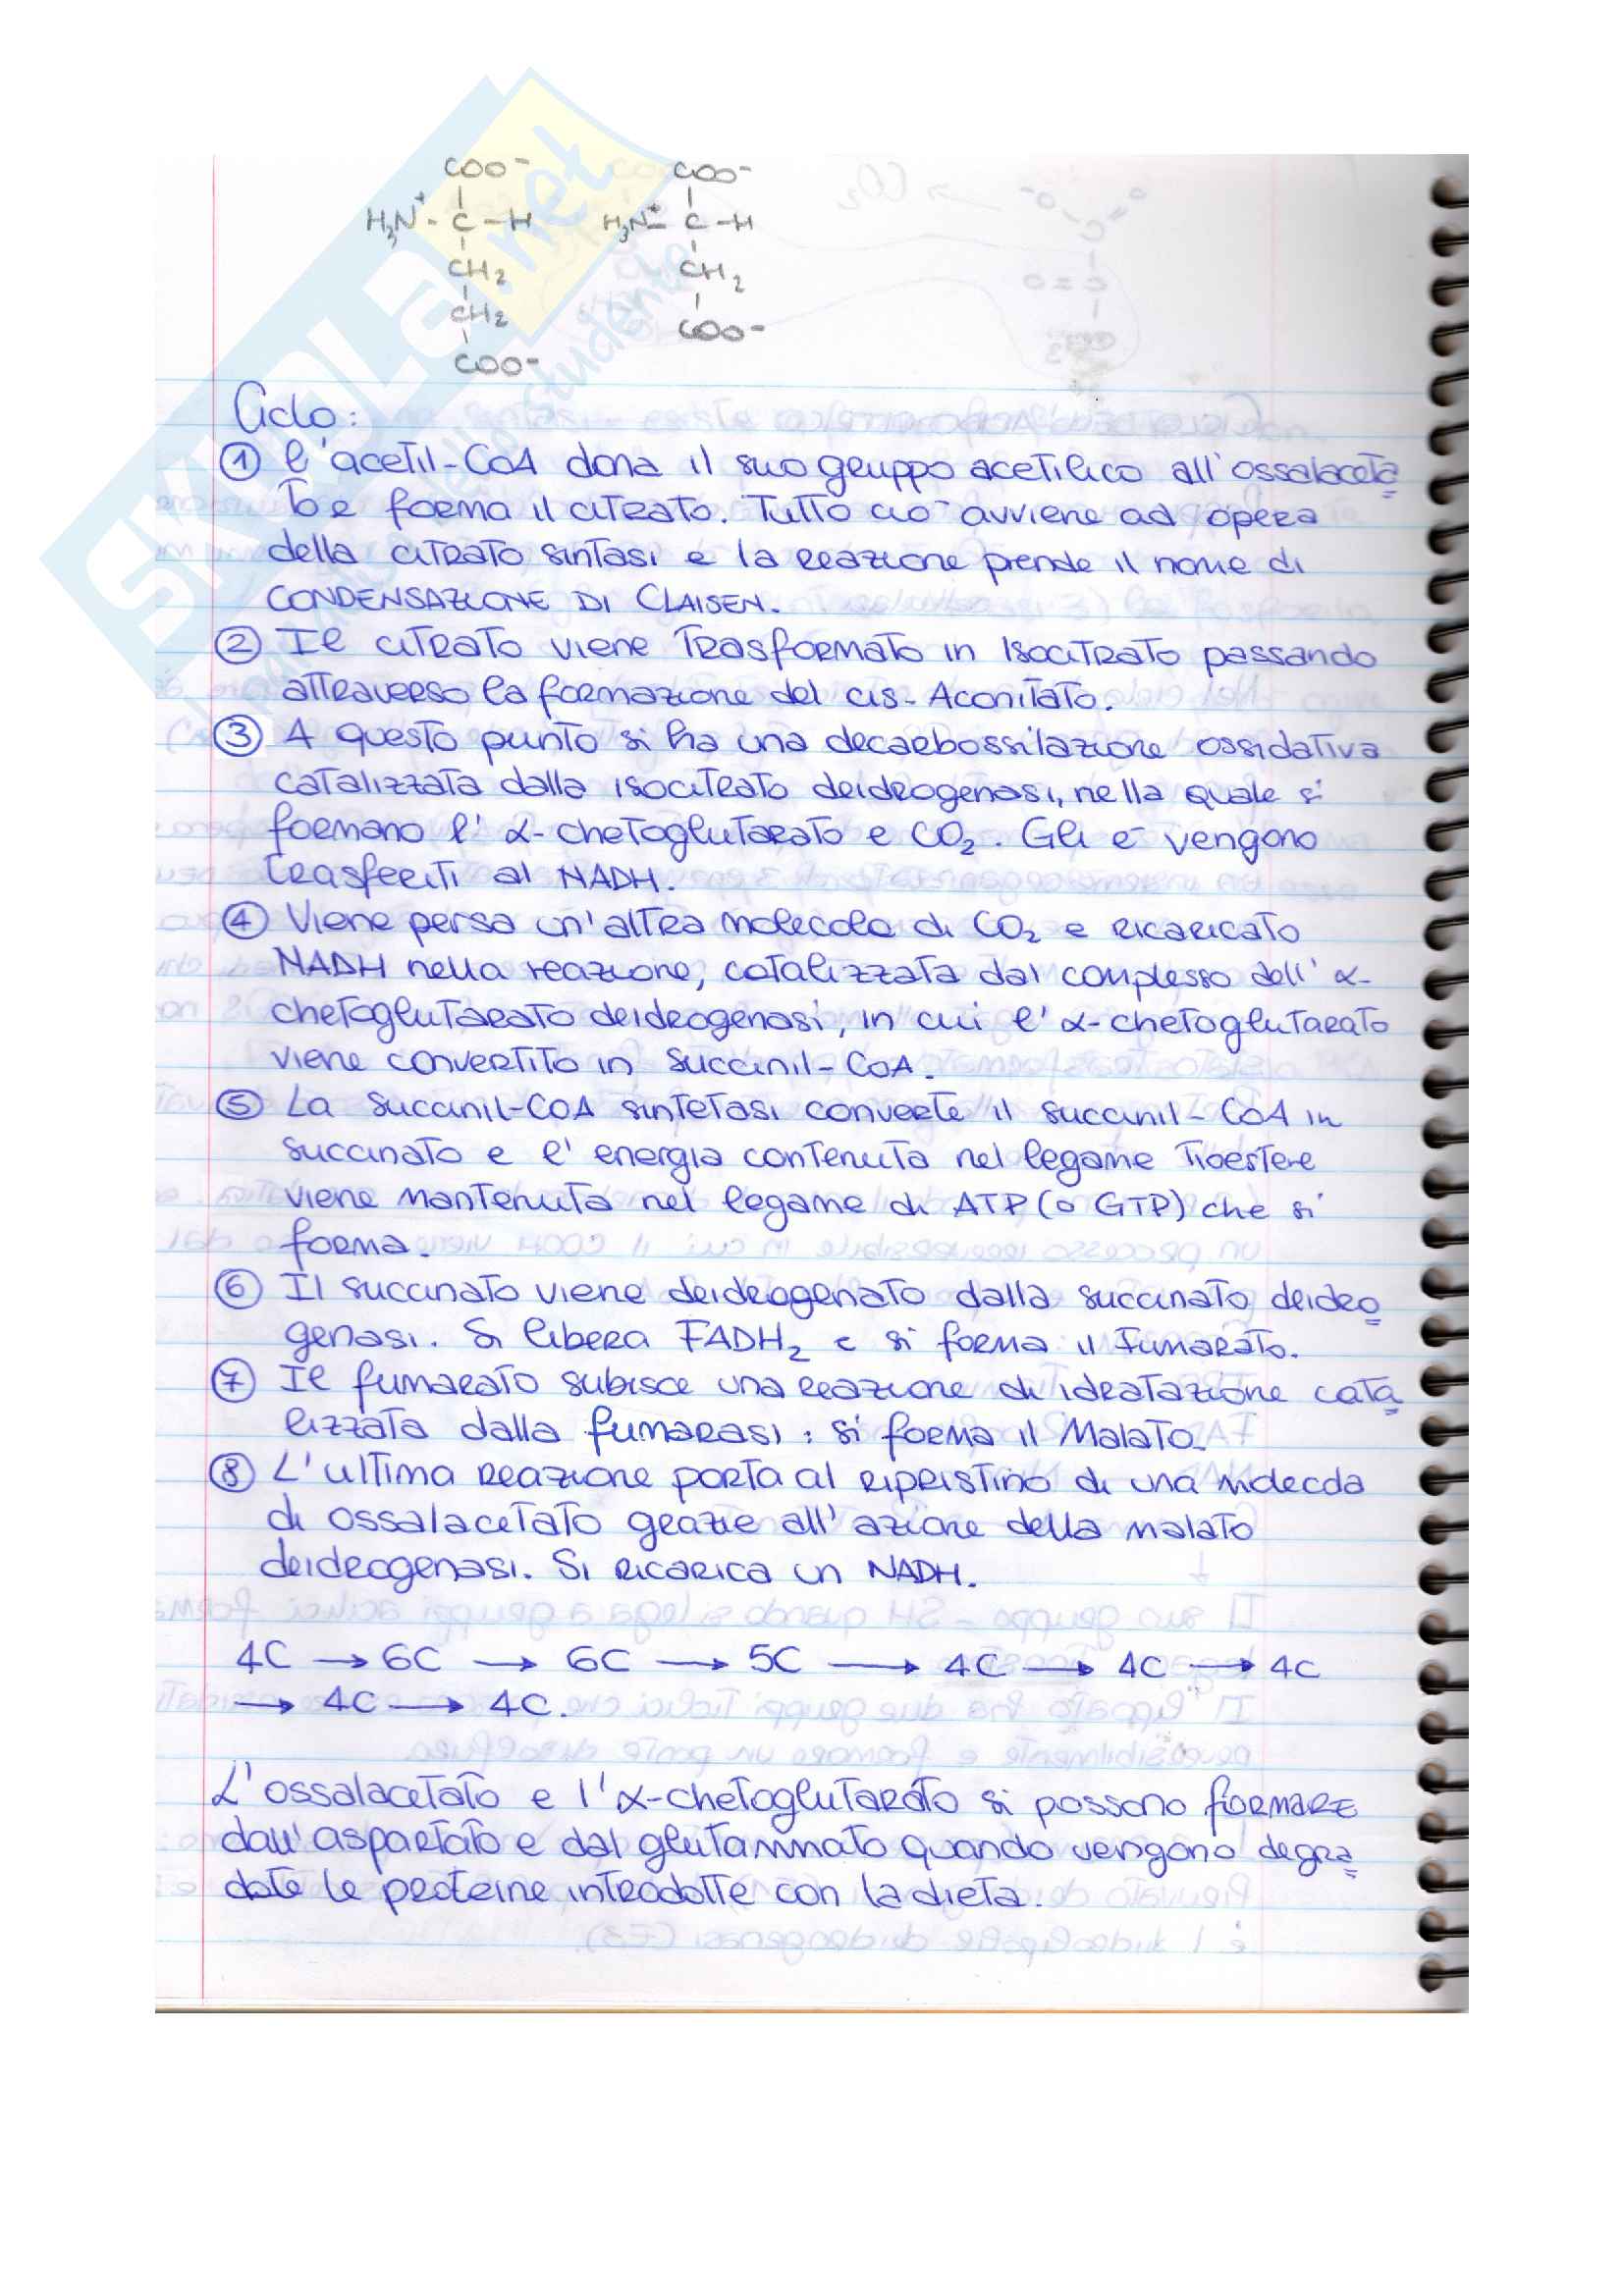 COO⁻ COO⁻
H₃N⁺- C -H H₃N⁺- C -H
CH₂ CH₂
CH₂ COO⁻
COO⁻
Ciclo:
① l'acetil-CoA dona il suo gruppo acetilico all'ossalaceta
to e forma il citrato. Tutto ciò avviene ad opera
della citrato sintasi e la reazione prende il nome di
CONDENSAZIONE DI CLAISEN.
② Il citrato viene trasformato in isocitrato passando
attraverso la formazione del cis-Aconitato.
③ A questo punto si ha una decarbossilazione ossidativa
catalizzata dalla isocitrato deidrogenasi, nella quale si
formano l'α-chetoglutarato e CO₂. Gli e⁻ vengono
trasferiti al NADH.
④ Viene persa un'altra molecola di CO₂ e ricaricato
NADH nella reazione, catalizzata dal complesso dell'α-
chetoglutarato deidrogenasi, in cui l'α-chetoglutarato
viene convertito in succinil-CoA.
⑤ La succinil-CoA sintetasi converte il succinil-CoA in
succinato e l'energia contenuta nel legame tioestere
viene mantenuta nel legame di ATP (o GTP) che si
forma.
⑥ Il succinato viene deidrogenato dalla succinato deidro
genasi. Si libera FADH₂ e si forma il fumarato.
⑦ Il fumarato subisce una reazione di idratazione cata
lizzata dalla fumarasi: si forma il Malato.
⑧ L'ultima reazione porta al ripristino di una molecola
di ossalacetato grazie all'azione della malato
deidrogenasi. Si ricarica un NADH.
4C → 6C → 6C → 5C → 4C → 4C → 4C
→ 4C → 4C.
L'ossalacetato e l'α-chetoglutarato si possono formare
dall'aspartato e dal glutammato quando vengono degra
date le proteine introdotte con la dieta.
SKUOLA.net